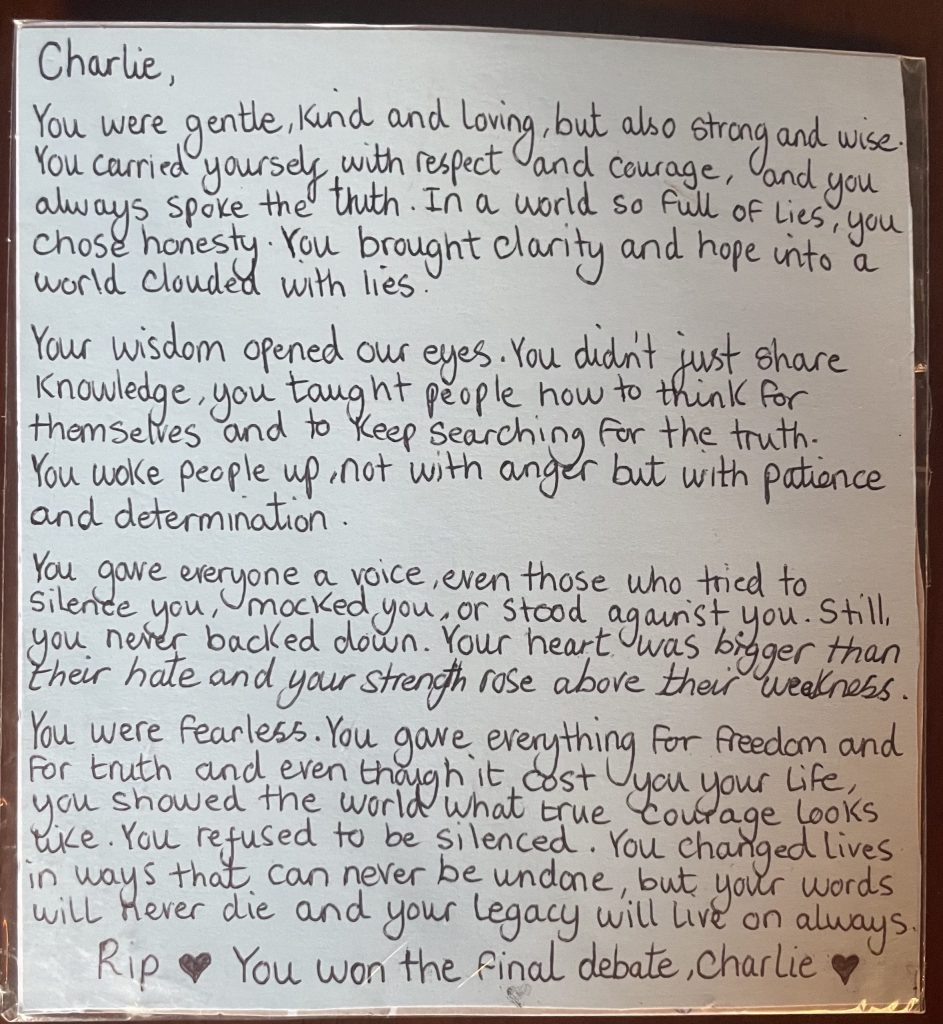 Charlie,
You were gentle, kind and loving, but also strong and wise.
You carried yourself with respect and courage, and you
always spoke the truth. In a world so full of lies, you
chose honesty. You brought clarity and hope into a
world clouded with lies.
Your wisdom opened our eyes. You didn't just share
knowledge, you taught people how to think for
themselves and to keep searching for the truth.
You woke people up, not with anger but with patience
and determination.
You gave everyone a voice, even those who tried to
silence you, mocked you, or stood against you. Still,
you never backed down. Your heart was bigger than
their hate and your strength rose above their weakness.
You were fearless. You gave everything for freedom and
for truth and even though it cost you your life,
you showed the world what true courage looks
like. You refused to be silenced. You changed lives
in ways that can never be undone, but your words
will never die and your legacy will live on always.
Rip ♥ You won the final debate, Charlie ♥